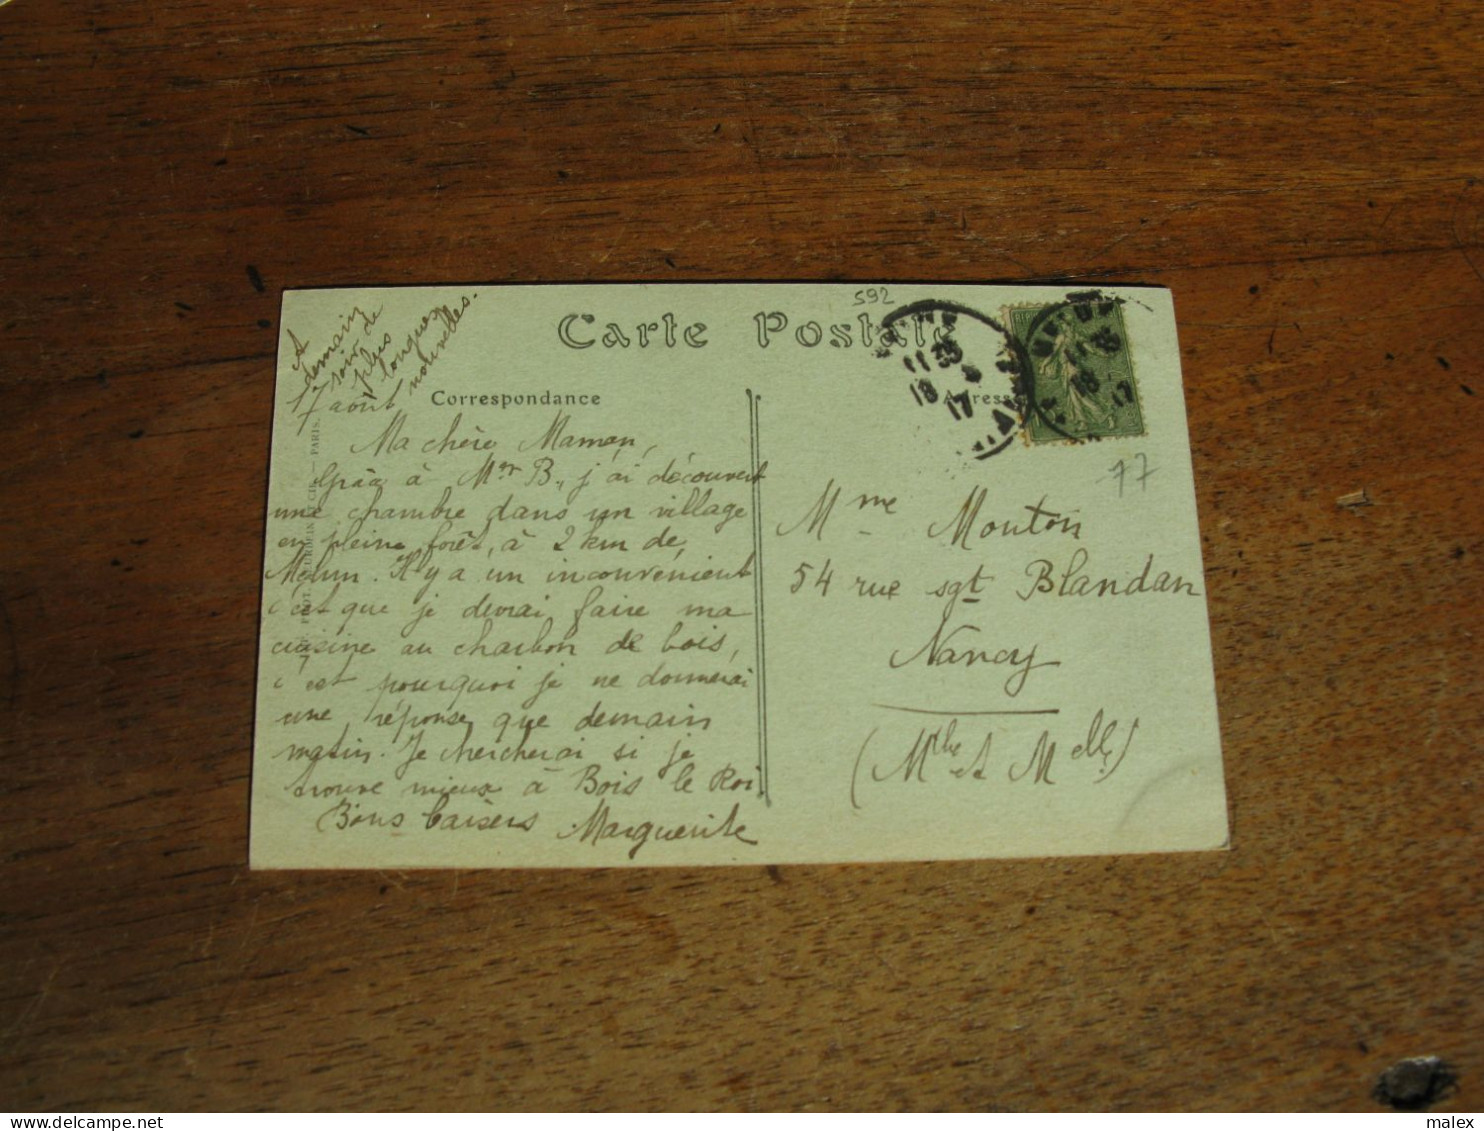 592
Carte Postale
A
demain
soir de
plus
longues
nouvelles.
17 août
Correspondance
Adresse
Ma chère Maman,
Grâce à Mr B., j'ai découvert
une chambre dans un village
en pleine forêt, à 2 km de
Melun. Il y a un inconvénient
c'est que je devrai faire ma
cuisine au charbon de bois,
c'est pourquoi je ne donnerai
une réponse que demain
matin. Je chercherai si je
trouve mieux à Bois le Roi.
Bons baisers Marguerite
PARIS.
MELUN
11 35
18 8
17
MELUN
11 35
18
17
77
Mme Mouton
54 rue sgt Blandan
Nancy
(Mthe et Melle)
malex
delcampe.net